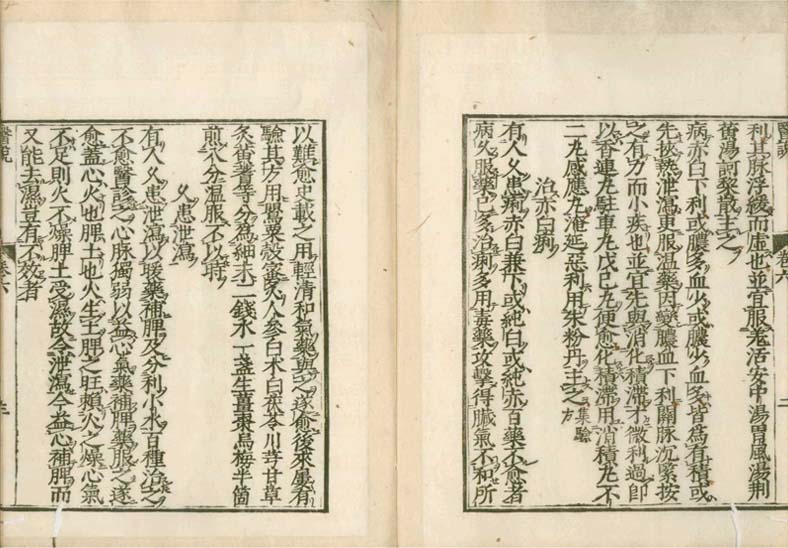 利其脉浮緩而虛也並宜服羌活安中湯胃風湯荆
黄湯訶黎散主之
病赤白下利或膿多血少或膿少血多皆爲有積或
先挾熱泄瀉更服温藥因變膿血下利關脉沉緊按
之有力而小疾也並宜先與消化積滯才微利過即
以香連丸駐車丸戊己丸便愈化積滯用消積丸不
二丸感應丸淹延惡利用朱粉丹主之集驗方
治赤白痢
有人久患痢赤白兼下或純白或純赤百藥不愈者
病久服藥已多治痢多用毒藥攻擊得臟氣不和所
醫說
卷六
二
以難愈史載之用輕清和氣藥與之遂愈後來屢有
驗其方用罌粟殼蜜炙人參白木白茯苓川芎甘草
炙黄蓍等分爲細末二錢水一盞生薑棗烏梅半箇
煎八分温服不以時
久患泄瀉
有人久患泄瀉以暖藥補脾及分利小水百種治之
不愈醫診之心脉獨弱以益心氣藥補脾藥服之遂
愈蓋心火也脾土也火生土脾之旺賴火之燥心氣
不足則火不燥脾土受濕故令泄瀉今益心補脾而
又能去濕豈有不效者
醫說
卷六
三